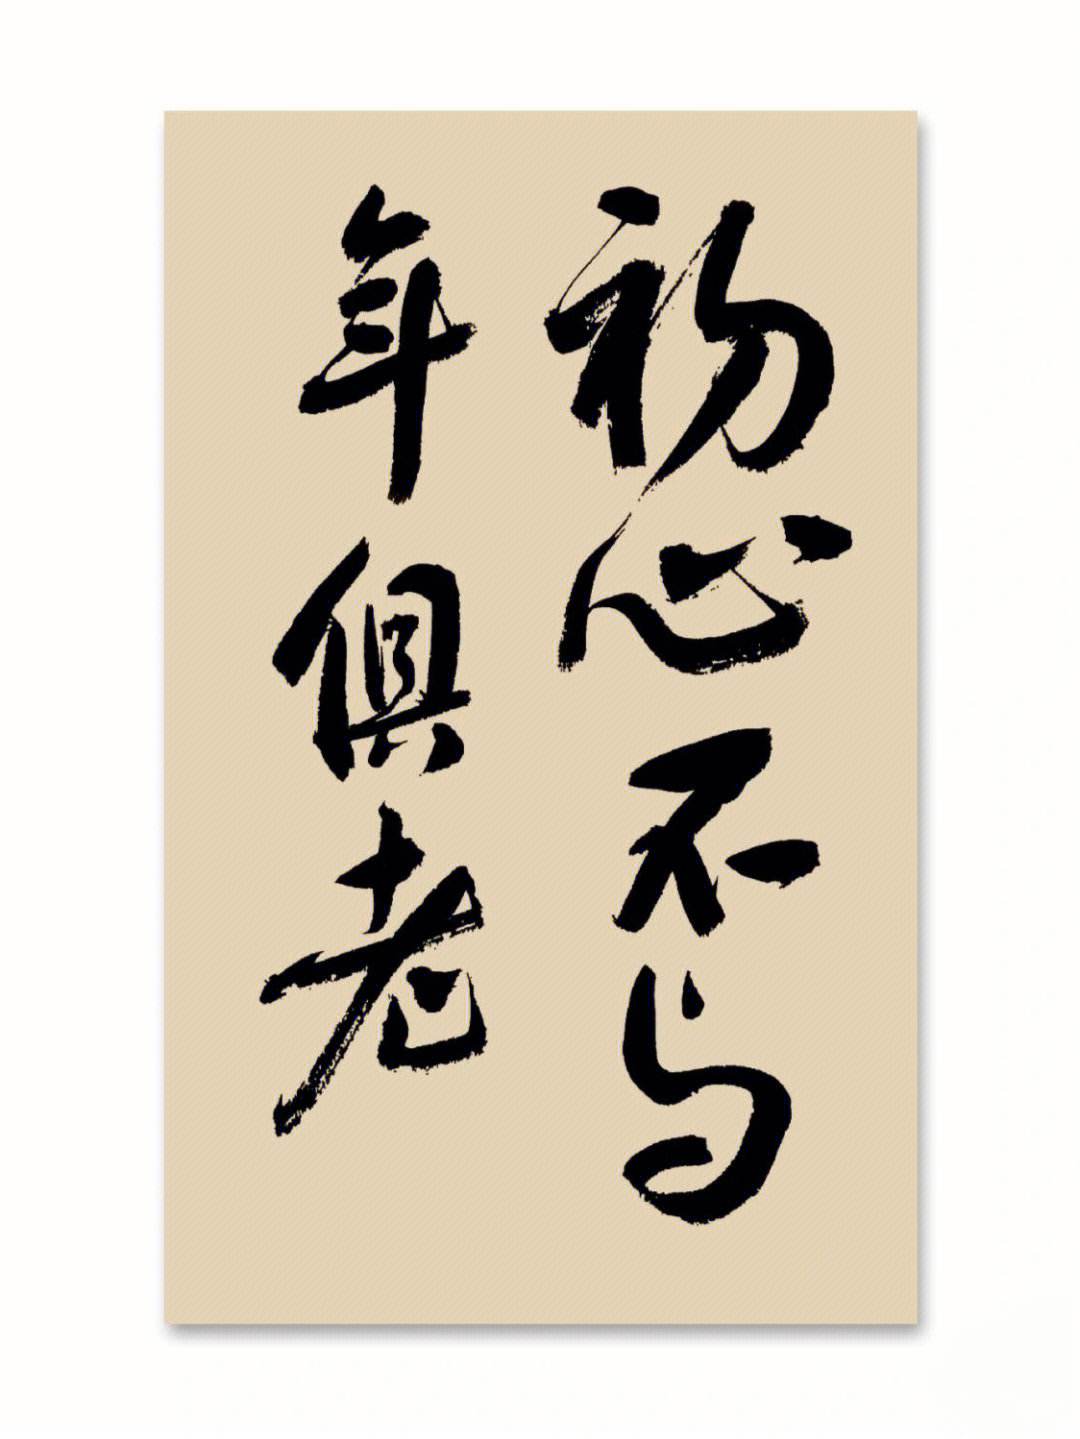 初心不与
年俱老